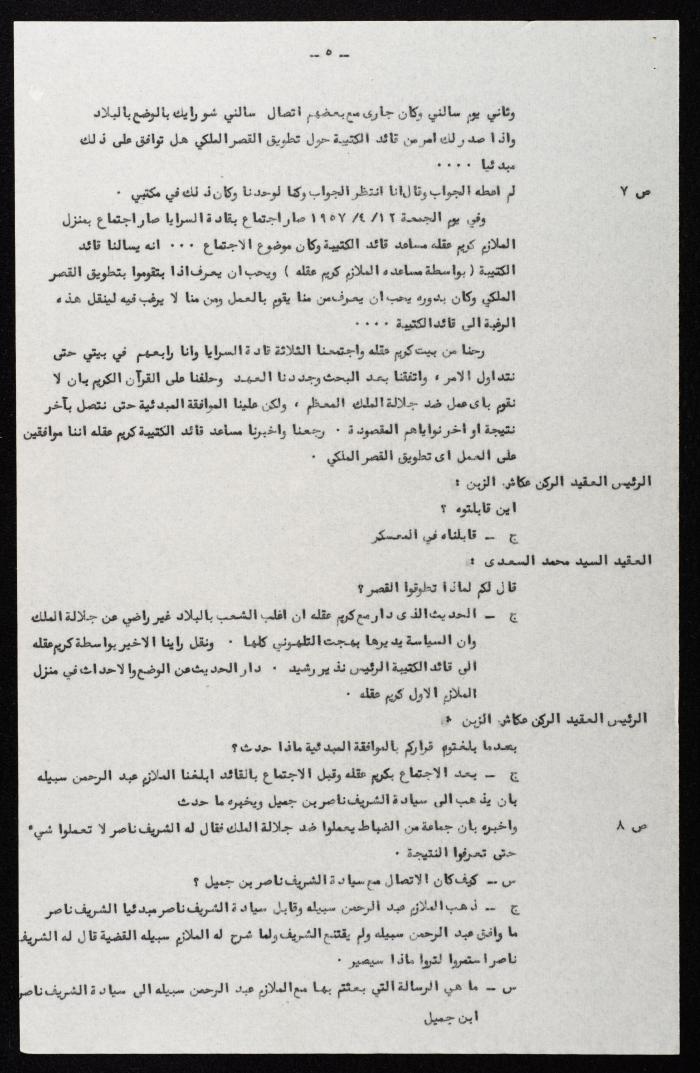 — ٥ —
وثاني يوم سالني وكان جارى مع بعضهم اتصال سالني شو رايك بالوضع بالبلاد
واذا صدر لك امر من قائد الكتيبة حول تطويق القصر الملكي هل توافق على ذلك
مبدئيا ٠٠٠٠
ص ٧ لم اعطه الجواب وقال انا انتظر الجواب وكنا لوحدنا وكان ذلك في مكتبي ٠
وفي يوم الجمعة ١٢/ ٤/ ١٩٥٧ صار اجتماع بقادة السرايا صار اجتماع بمنزل
الملازم كريم عقله مساعد قائد الكتيبة وكان موضوع الاجتماع ٠٠٠ انه يسالنا قائد
الكتيبة ( بواسطة مساعده الملازم كريم عقله ) ويحب ان يعرف اذا بتقوموا بتطويق القصر
الملكي وكان بدوره يحب ان يعرف من منا يقوم بالعمل ومن منا لا يرغب فيه لينقل هذه
الرغبة الى قائد الكتيبة ٠٠٠٠
رحنا من بيت كريم عقله واجتمعنا الثلاثة قادة السرايا وانا رابعهم في بيتي حتى
نتداول الامر ، واتفقنا بعد البحث وجددنا العهد وحلفنا على القرآن الكريم بان لا
نقوم باى عمل ضد جلالة الملك المعظم ، ولكن علينا الموافقة المبدئية حتى نتصل بآخر
نتيجة او اخر نواياهم المقصودة ٠ رجعنا واخبرنا مساعد قائد الكتيبة كريم عقله اننا موافقين
على العمل اى تطويق القصر الملكي ٠
الرئيس العقيد الركن عكاش الزبن :
اين قابلتوه ؟
ج — قابلناه في المعسكر
العقيد السيد محمد السعدى :
قال لكم لماذا تطوقوا القصر ؟
ج — الحديث الذى دار مع كريم عقله ان اغلب الشعب بالبلاد غير راضي عن جلالة الملك
وان السياسة يديرها بهجت التلهوني كلها ٠ ونقل راينا الاخير بواسطة كريم عقله
الى قائد الكتيبة الرئيس نذير رشيد ٠ دار الحديث عن الوضع والاحداث في منزل
الملازم الاول كريم عقله ٠
الرئيس العقيد الركن عكاش الزبن :
بعدما بلغتوه قراركم بالموافقة المبدئية ماذا حدث ؟
ج — بعد الاجتماع بكريم عقله وقبل الاجتماع بالقائد ابلغنا الملازم عبد الرحمن سبيله
بان يذهب الى سيادة الشريف ناصر بن جميل ويخبره ما حدث
ص ٨ واخبره بان جماعة من الضباط يعملوا ضد جلالة الملك فقال له الشريف ناصر لا تعملوا شيء
حتى تعرفوا النتيجة ٠
س — كيف كان الاتصال مع سيادة الشريف ناصر بن جميل ؟
ج — ذهب الملازم عبد الرحمن سبيله وقابل سيادة الشريف ناصر مبدئيا الشريف ناصر
ما وافق عبد الرحمن سبيله ولم يقتنع الشريف ولما شرح له الملازم سبيله القضية قال له الشريف
ناصر استمروا لتروا ماذا سيصير ٠
س — ما هي الرسالة التي بعثتم بها مع الملازم عبد الرحمن سبيله الى سيادة الشريف ناصر
ابن جميل